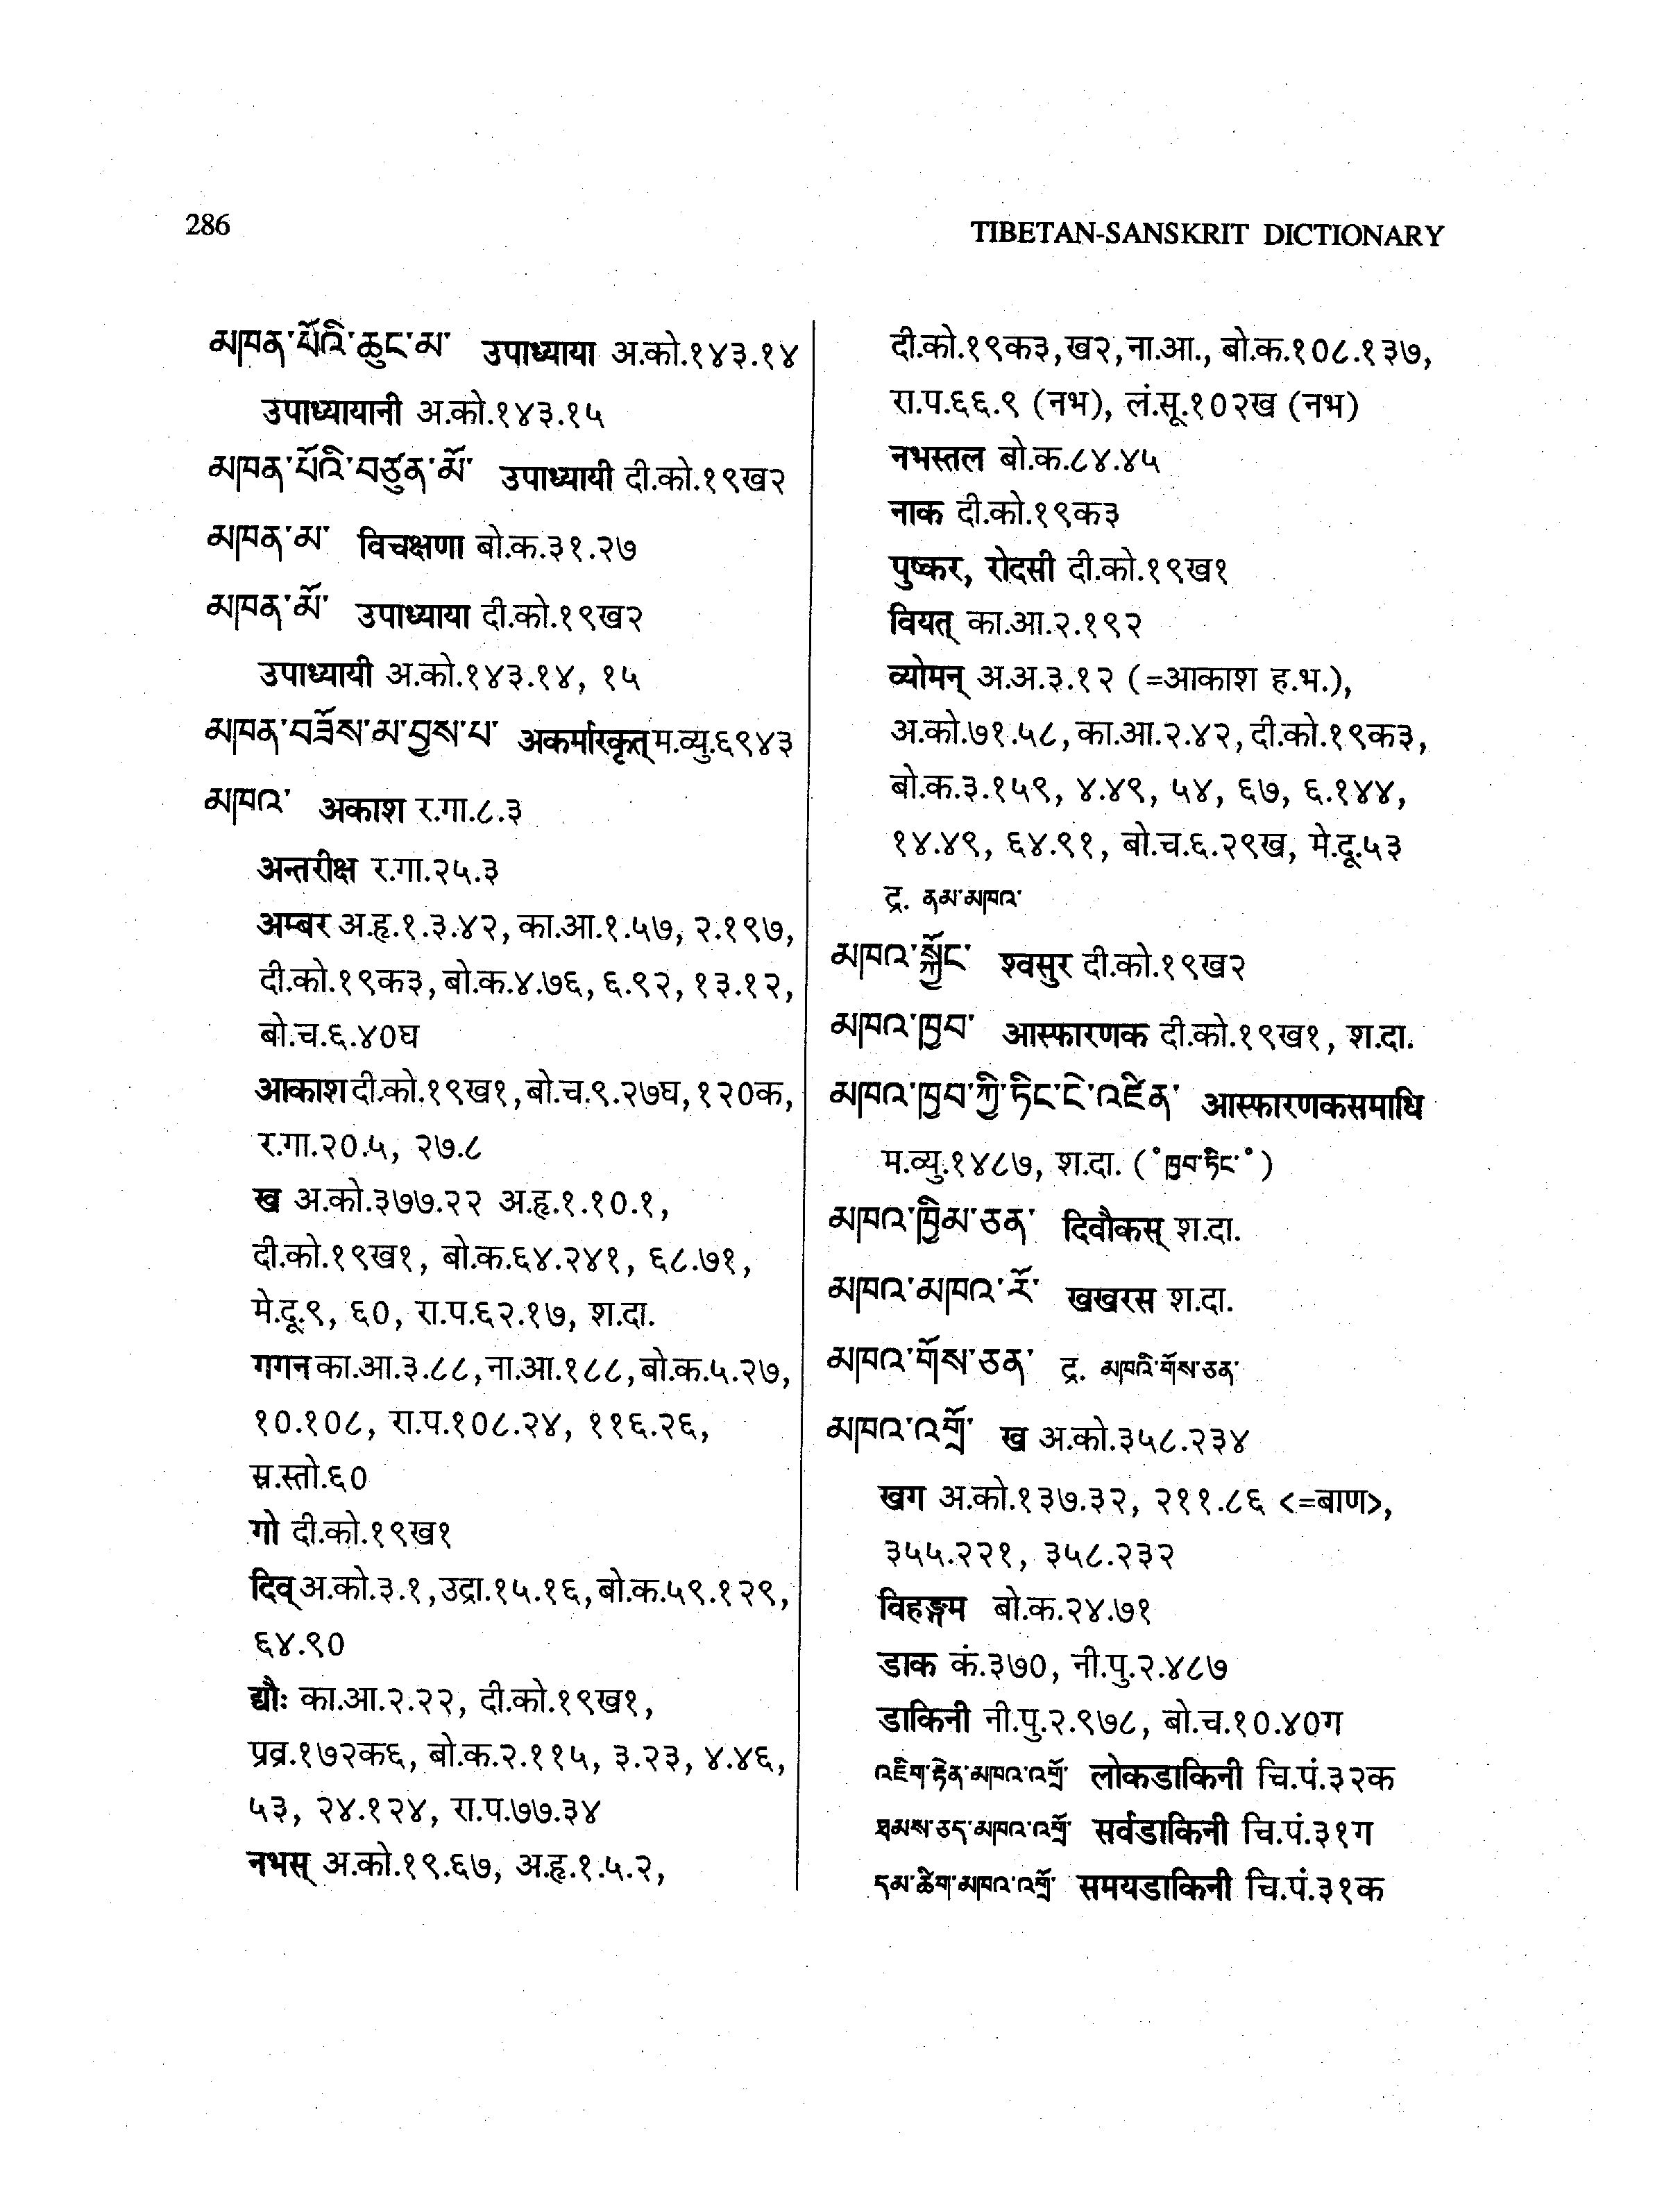 286
TIBETAN-SANSKRIT DICTIONARY
མཁན་པོའི་ཆུང་མ་ उपाध्याया अ.को.१४३.१४
उपाध्यायानी अ.को.१४३.१५
མཁན་པོའི་བཙུན་མོ་ उपाध्यायी दी.को.१९ख२
མཁན་མ་ विचक्षणा बो.क.३१.२७
མཁན་མོ་ उपाध्याया दी.को.१९ख२
उपाध्यायी अ.को.१४३.१४, १५
མཁན་བཟོས་མ་བྱས་པ་ अकर्मारकृत् म.व्यु.६९४३
མཁའ་ अकाश र.गा.८.३
अन्तरीक्ष र.गा.२५.३
अम्बर अ.हृ.१.३.४२, का.आ.१.५७, २.१९७,
दी.को.१९क३, बो.क.४.७६, ६.९२, १३.१२,
बो.च.६.४०घ
आकाश दी.को.१९ख१, बो.च.९.२७घ, १२०क,
र.गा.२०.५, २७.८
ख अ.को.३७७.२२ अ.हृ.१.१०.१,
दी.को.१९ख१, बो.क.६४.२४१, ६८.७१,
मे.दू.९, ६०, रा.प.६२.१७, श.दा.
गगन का.आ.३.८८, ना.आ.१८८, बो.क.५.२७,
१०.१०८, रा.प.१०८.२४, ११६.२६,
स्र.स्तो.६०
गो दी.को.१९ख१
दिव् अ.को.३.१, उद्रा.१५.१६, बो.क.५९.१२९,
६४.९०
द्यौः का.आ.२.२२, दी.को.१९ख१,
प्रव्र.१७२क६, बो.क.२.११५, ३.२३, ४.४६,
५३, २४.१२४, रा.प.७७.३४
नभस् अ.को.१९.६७, अ.हृ.१.५.२,
दी.को.१९क३, ख२, ना.आ., बो.क.१०८.१३७,
रा.प.६६.९ (नभ), लं.सू.१०२ख (नभ)
नभस्तल बो.क.८४.४५
नाक दी.को.१९क३
पुष्कर, रोदसी दी.को.१९ख१
वियत् का.आ.२.१९२
व्योमन् अ.अ.३.१२ (=आकाश ह.भ.),
अ.को.७१.५८, का.आ.२.४२, दी.को.१९क३,
बो.क.३.१५९, ४.४९, ५४, ६७, ६.१४४,
१४.४९, ६४.९१, बो.च.६.२९ख, मे.दू.५३
द्र. ནམ་མཁའ་
མཁའ་སྐྱོང་ श्वसुर दी.को.१९ख२
མཁའ་ཁྱབ་ आस्फारणक दी.को.१९ख१, श.दा.
མཁའ་ཁྱབ་ཀྱི་ཏིང་ངེ་འཛིན་ आस्फारणकसमाधि
म.व्यु.१४८७, श.दा. (°ཁྱབ་ཏིང་°)
མཁའ་ཁྱིམ་ཅན་ दिवौकस् श.दा.
མཁའ་མཁའ་རོ་ खखरस श.दा.
མཁའ་གོས་ཅན་ द्र. མཁའི་གོས་ཅན་
མཁའ་འགྲོ་ ख अ.को.३५८.२३४
खग अ.को.१३७.३२, २११.८६ <=बाण>,
३५५.२२१, ३५८.२३२
विहङ्गम बो.क.२४.७१
डाक कं.३७०, नी.पु.२.४८७
डाकिनी नी.पु.२.९७८, बो.च.१०.४०ग
འཇིག་རྟེན་མཁའ་འགྲོ་ लोकडाकिनी चि.पं.३२क
ཐམས་ཅད་མཁའ་འགྲོ་ सर्वडाकिनी चि.पं.३१ग
དམ་ཚིག་མཁའ་འགྲོ་ समयडाकिनी चि.पं.३१क